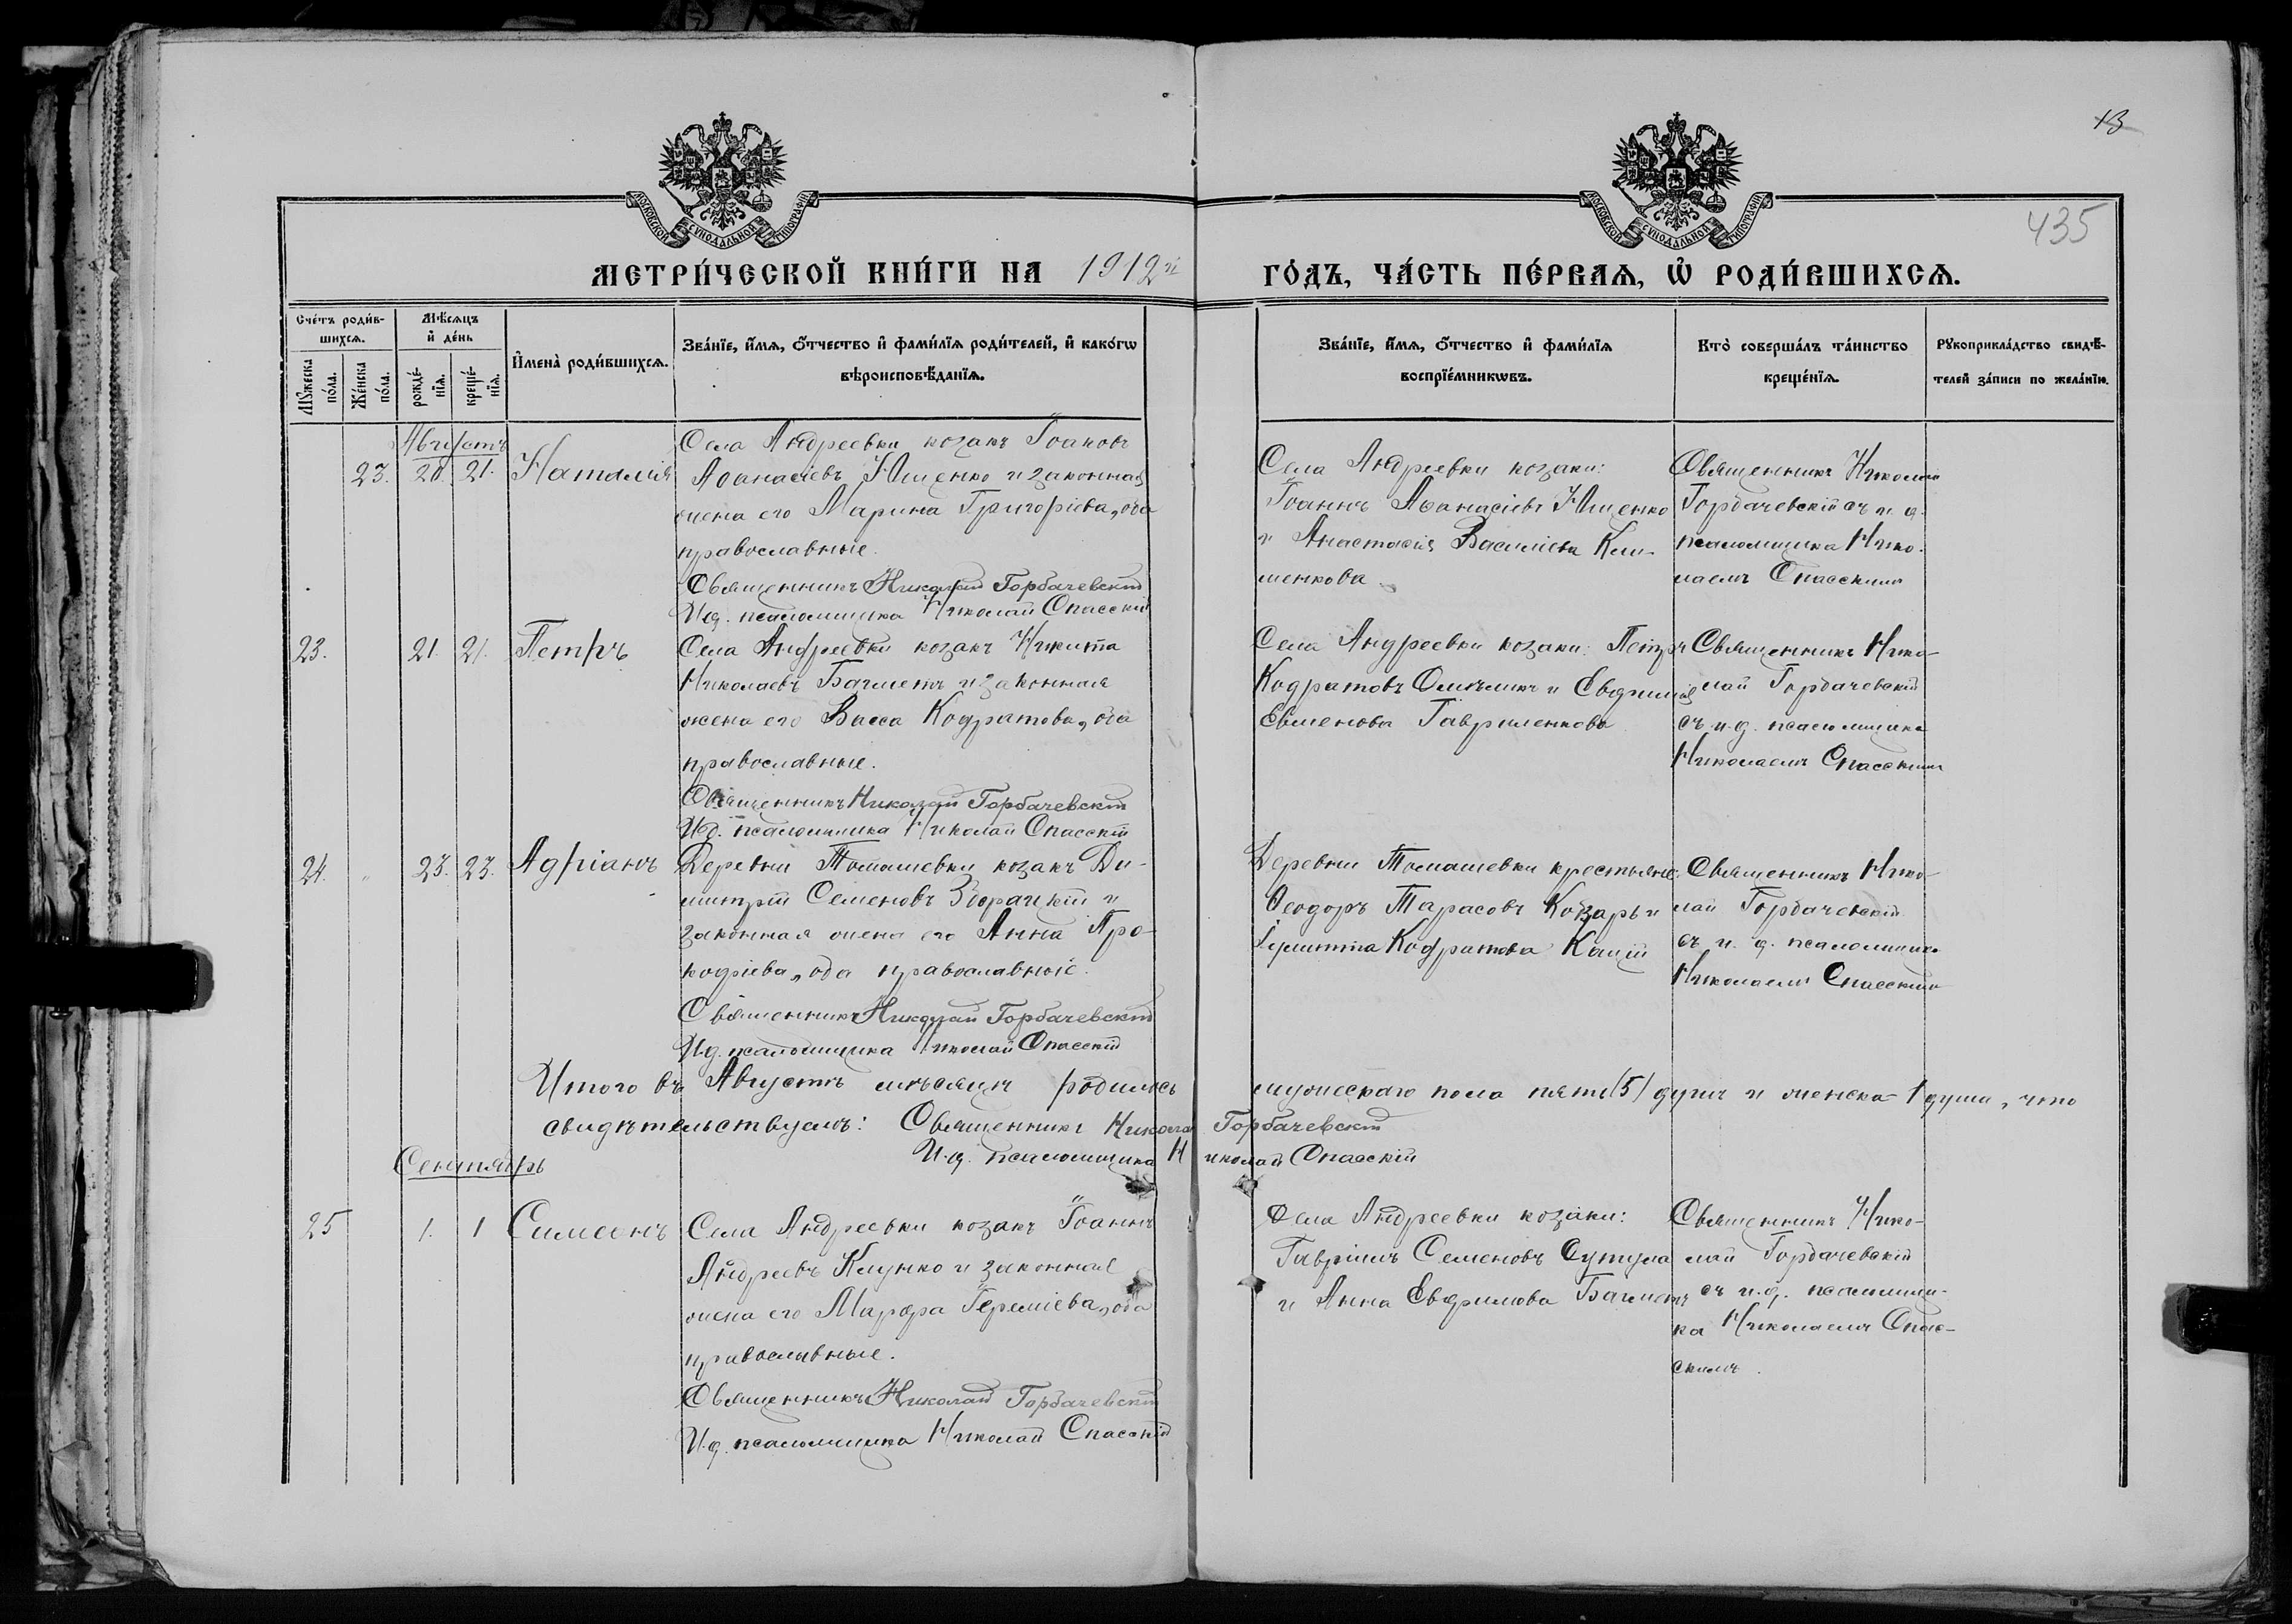 13
435
МОСКОВСКОЙ СѴНОДАЛЬНОЙ ТИПОГРАФІИ
МОСКОВСКОЙ СѴНОДАЛЬНОЙ ТИПОГРАФІИ
МЕТРИ́ЧЕСКОЙ КНИ́ГИ НА 1912й ГО́ДЪ, ЧА́СТЬ ПЕ́РВАЯ, Ѡ РОДИ́ВШИХСЯ.
Сче́тъ роди́в-
шихся.
Мꙋ́жеска
по́ла.
Же́нска
по́ла.
Мѣ́сяцъ
и де́нь
рожде́-
нїя.
креще́-
нїя.
Имена̀ роди́вшихся.
Зва́нїе, и́мя, о́тчество и фами́лїя роди́телей, и како́гѡ
вѣроисповѣ́данїя.
Зва́нїе, и́мя, о́тчество и фами́лїя
воспрїе́мникѡвъ.
Кто̀ соверша́лъ та́инство
креще́нїя.
Рꙋкоприкла́дство свидѣ́-
телей за́писи по жела́нїю.
Августъ
23. 20. 21. Наталія
Села Андреевки козакъ Іоаннъ
Аѳанасіевъ Ющенко и законная
жена его Марина Григоріева, оба
православные.
Священникъ Николай Горбачевскій
И.д. псаломщика Николай Спасскій
Села Андреевки козаки:
Іоаннъ Аѳанасіевъ Ющенко
и Анастасія Василіева Кли-
менкова
Священникъ Николай
Горбачевскій съ и. д.
псаломщика Нико-
лаемъ Спасскимъ
23. 21. 21. Петръ
Села Андреевки козакъ Никита
Николаевъ Багметъ и законная
жена его Васса Кодратова, оба
православные.
Священникъ Николай Горбачевскій
И.д. псаломщика Николай Спасскій
Села Андреевки козаки: Петръ
Кодратовъ и Евдокія
Евменова Гавриленкова
Священникъ Нико-
лай Горбачевскій
съ и.д. псаломщика
Николаемъ Спасскимъ
24. " 23. 23. Адріанъ
Деревни Томашевки козакъ Ди-
митрій Семеновъ Зборацкій и
законная жена его Анна Про-
кофіева, оба православные.
Священникъ Николай Горбачевскій
И.д. псаломщика Николай Спасскій
Деревни Томашевки крестьяне:
Ѳеодоръ Тарасовъ Кобзарь и
Кодратова
Священникъ Нико-
лай Горбачевскій
съ и. д. псаломщика
Николаемъ Спасскимъ
Итого въ Августѣ мѣсяцѣ родилось мужескаго пола пять (5) душъ и женска 1 душа, что
свидѣтельствуемъ: Священникъ Николай Горбачевскій
И.д. псаломщика Николай Спасскій
Сентябрь
25 1. 1 Симеонъ
Села Андреевки козакъ Іоаннъ
Андреевъ Клунко и законная
жена его Марѳа Іереміева, оба
православные.
Священникъ Николай Горбачевскій
И.д. псаломщика Николай Спасскій
Села Андреевки козаки:
Гавріилъ Семеновъ Супула
и Анна Евфимова Багметъ
Священникъ Нико-
лай Горбачевскій
съ и.д. псаломщи-
ка Николаемъ Спас-
скимъ.